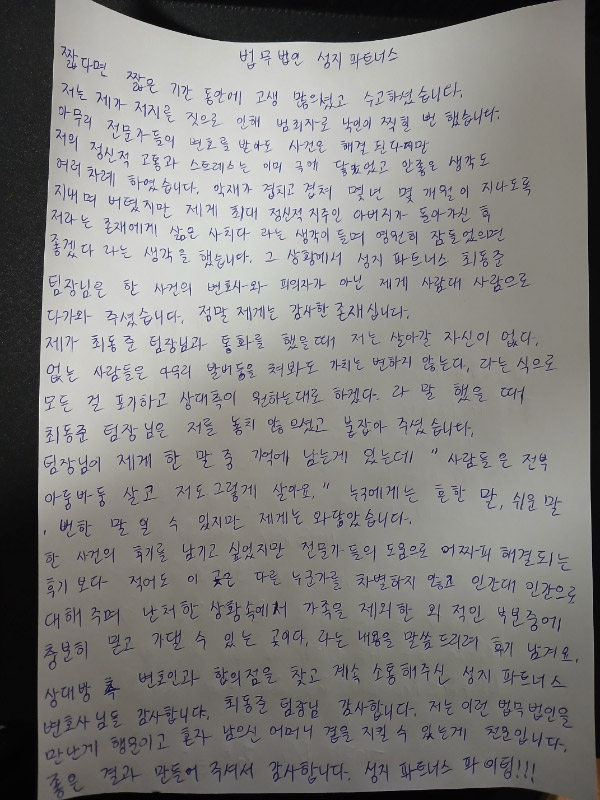 법무법인 성지 파트너스
짧다면 짧은 기간 동안에 고생 많으셨고 수고하셨습니다.
저는 제가 저지른 짓으로 인해 범죄자로 낙인이 찍힐 뻔 했습니다.
아무리 전문가들의 변호를 받아도 사건은 해결 된다지만
저의 정신적 고통과 스트레스는 이미 극에 달했었고 안좋은 생각도
여러차례 하였습니다. 악재가 겹치고 겹쳐 몇년 몇 개월이 지나도록
지내며 버텼지만 제게 최대 정신적 지주인 아버지가 돌아가신 후
저라는 존재에게 삶은 사치다 라는 생각이 들며 영원히 잠들었으면
좋겠다 라는 생각을 했습니다. 그 상황에서 성지 파트너스 최동준
팀장님은 한 사건의 변호사와 피의자가 아닌 제게 사람대 사람으로
다가와 주셨습니다. 정말 제게는 감사한 존재십니다.
제가 최동준 팀장님과 통화를 했을때 저는 살아갈 자신이 없다.
없는 사람들은 아무리 발버둥을 쳐봐도 가치는 변하지 않는다, 라는 식으로
모든 걸 포기하고 상대측이 원하는대로 하겠다. 라 말 했을 때
최동준 팀장님은 저를 놓치 않으셨고 붙잡아 주셨습니다.
팀장님이 제게 한 말 중 기억에 남는게 있는데 " 사람들은 전부
아등바등 살고 저도 그렇게 살아요." 누구에게는 흔한 말, 쉬운 말
, 뻔한 말 일 수 있지만 제게는 와닿았습니다.
한 사건의 후기를 남기고 싶었지만 전문가들의 도움으로 어찌피 해결되는
후기 보다 적어도 이 곳은 다른 누군가를 차별하지 않고 인간대 인간으로
대해 주며 난처한 상황속에서 가족을 제외한 외적인 부분중에
충분히 믿고 기댈 수 있는 곳이다, 라는 내용을 말씀 드리려 후기 남겨요.
상대방 변호인과 합의점을 찾고 계속 소통해주신 성지 파트너스
변호사님들 감사합니다. 최동준 팀장님 감사합니다. 저는 이런 법무법인을
만난게 행운이고 혼자 남으신 어머니 곁을 지킬 수 있는게 천운입니다.
좋은 결과 만들어 주셔서 감사합니다. 성지 파트너스 파이팅!!!